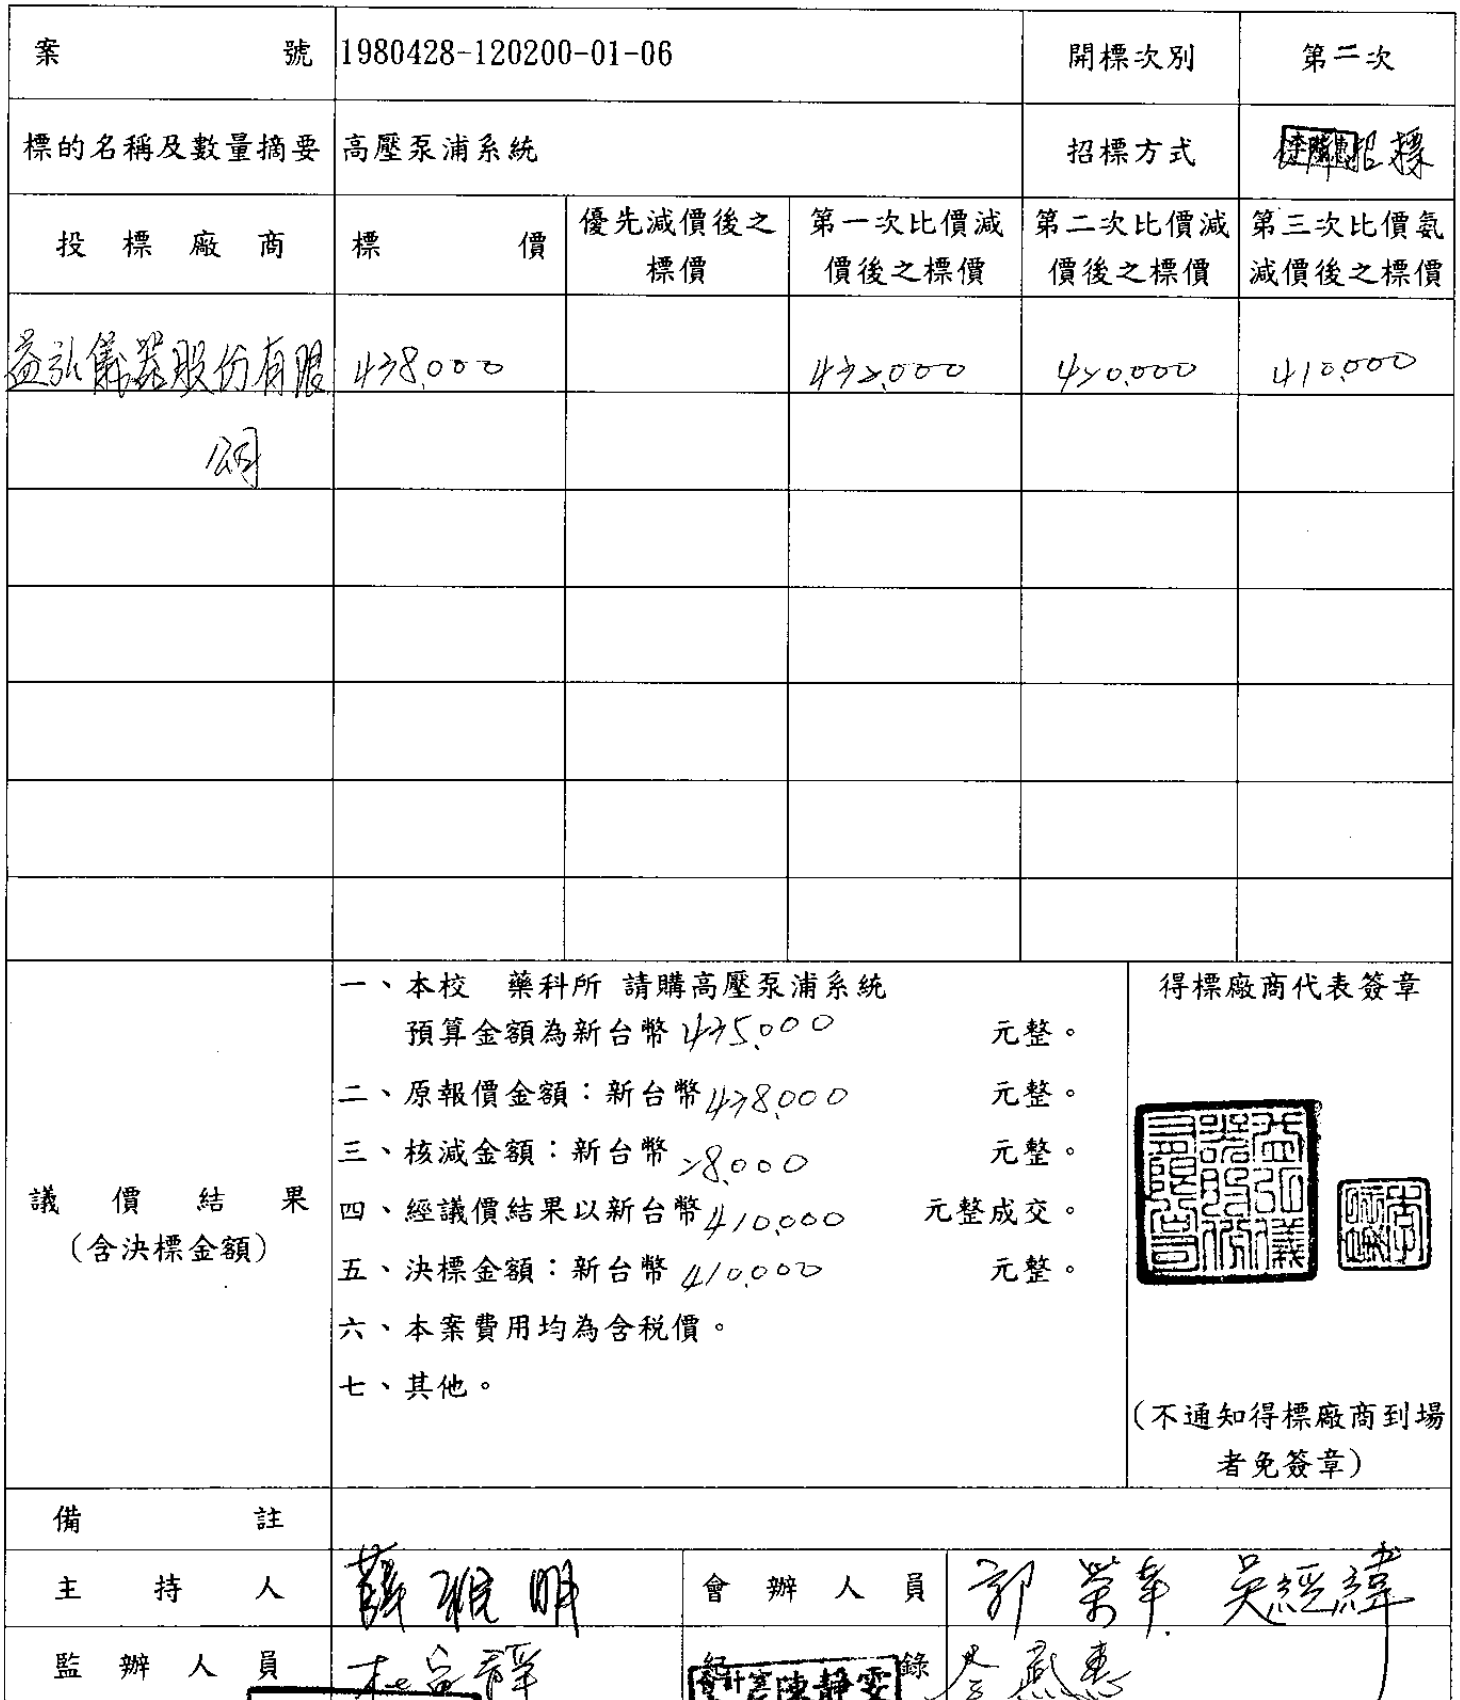 案號 1980428-120200-01-06 開標次別 第二次
標的名稱及數量摘要 高壓泵浦系統 招標方式 招標
投標廠商 標價 優先減價後之標價 第一次比價減價後之標價 第二次比價減價後之標價 第三次比價氨減價後之標價
益弘儀器股份有限 438,000 432,000 420,000 410,000
公司
一、本校 藥科所 請購高壓泵浦系統
預算金額為新台幣 435,000 元整。
二、原報價金額：新台幣 438,000 元整。
三、核減金額：新台幣 28,000 元整。
四、經議價結果以新台幣 410,000 元整成交。
五、決標金額：新台幣 410,000 元整。
六、本案費用均為含稅價。
七、其他。
議價結果
（含決標金額）
得標廠商代表簽章
（不通知得標廠商到場
者免簽章）
備註
主持人 薛雅明 會辦人員 郭榮華 吳經緯
監辦人員 錄
陳靜雯